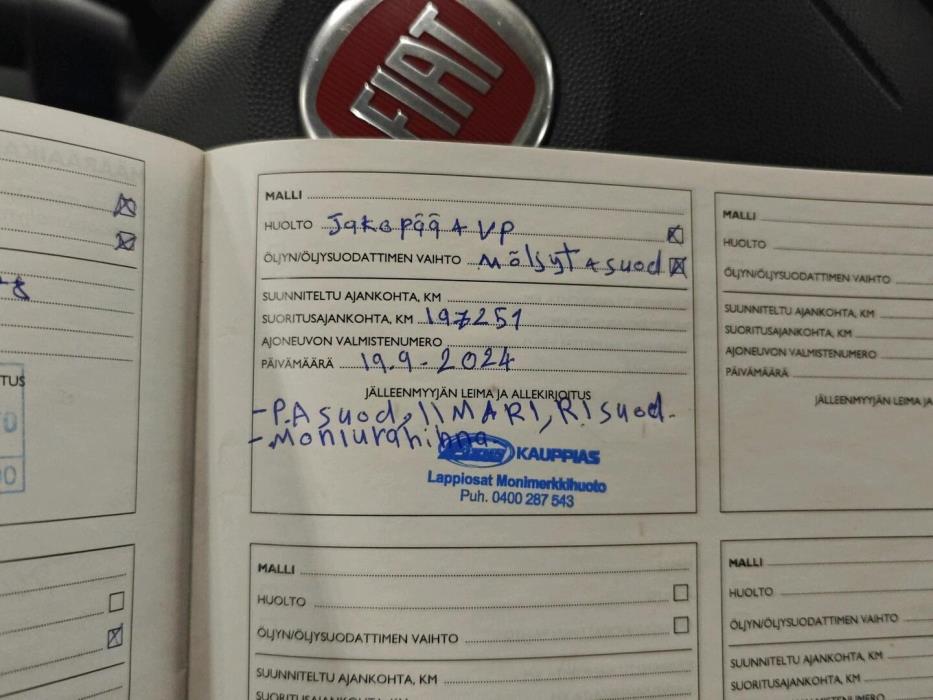 FIAT
MALLI
HUOLTO Jakopää + VP
ÖLJYN/ÖLJYSUODATTIMEN VAIHTO Möljyt + suod
SUUNNITELTU AJANKOHTA, KM
SUORITUSAJANKOHTA, KM 197251
AJONEUVON VALMISTENUMERO
PÄIVÄMÄÄRÄ 19.9-2024
JÄLLEENMYYJÄN LEIMA JA ALLEKIRJOITUS
- P.A suod, IlMARI, RI suod.
- Moniurahihna
KAUPPIAS
Lappiosat Monimerkkihuoto
Puh. 0400 287 543
MALLI
HUOLTO
ÖLJYN/ÖLJYSUODATTIMEN VAIHTO
SUUNNITELTU AJANKOHTA, KM
SUORITUSAJANKOHTA, KM
MALLI
HUOLTO
ÖLJYN/ÖLJYSUODATTIMEN VAIHTO
SUUNNITELTU AJANKOHTA, KM
SUORITUSAJANKOHTA, KM
AJONEUVON VALMISTENUMERO
PÄIVÄMÄÄRÄ
JÄLLEENMYYJÄN LEIMA JA
MALLI
HUOLTO
ÖLJYN/ÖLJYSUODATTIMEN VAIHTO
SUUNNITELTU AJANKOHTA, KM
SUORITUSAJANKOHTA, KM
AJONEUVON VALMISTENUMERO
TUS